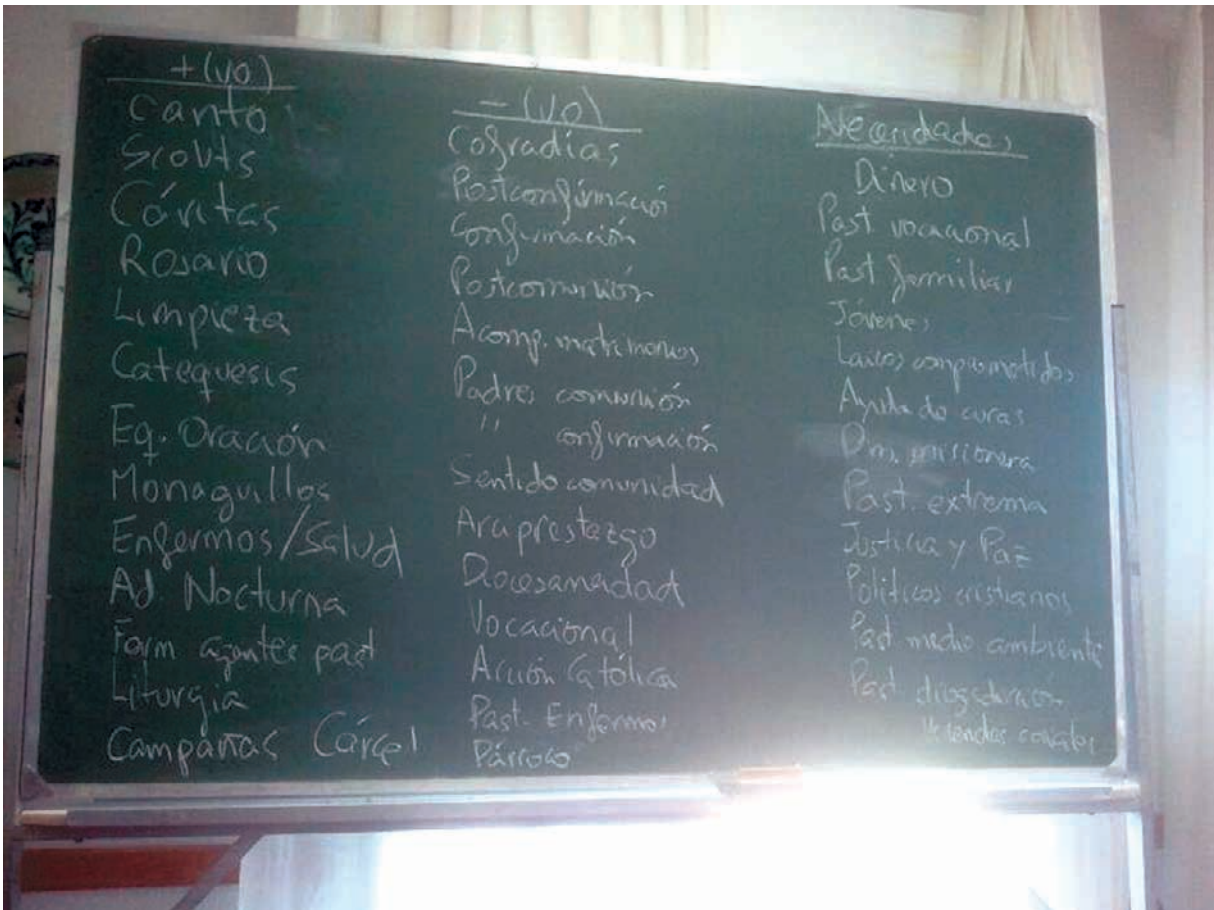 +(vo)
Canto
Scouts
Cáritas
Rosario
Limpieza
Catequesis
Eq. Oración
Monaguillos
Enfermos/Salud
Ad. Nocturna
Form agentes past
Liturgia
Campañas Cárcel
-(vo)
Cofradías
Postconfirmación
Confirmación
Postcomunión
Acomp. matrimonios
Padres comunión
" confirmación
Sentido comunidad
Arciprestazgo
Diocesaneidad
Vocacional
Acción Católica
Past. Enfermos
Párroco
Necesidades
Dinero
Past vocacional
Past familiar
Jóvenes
Laicos comprometidos
Ayuda de curas
Dim. misionera
Past. extrema
Justicia y Paz
Políticos cristianos
Past medio ambiente
Past.
Viviendas